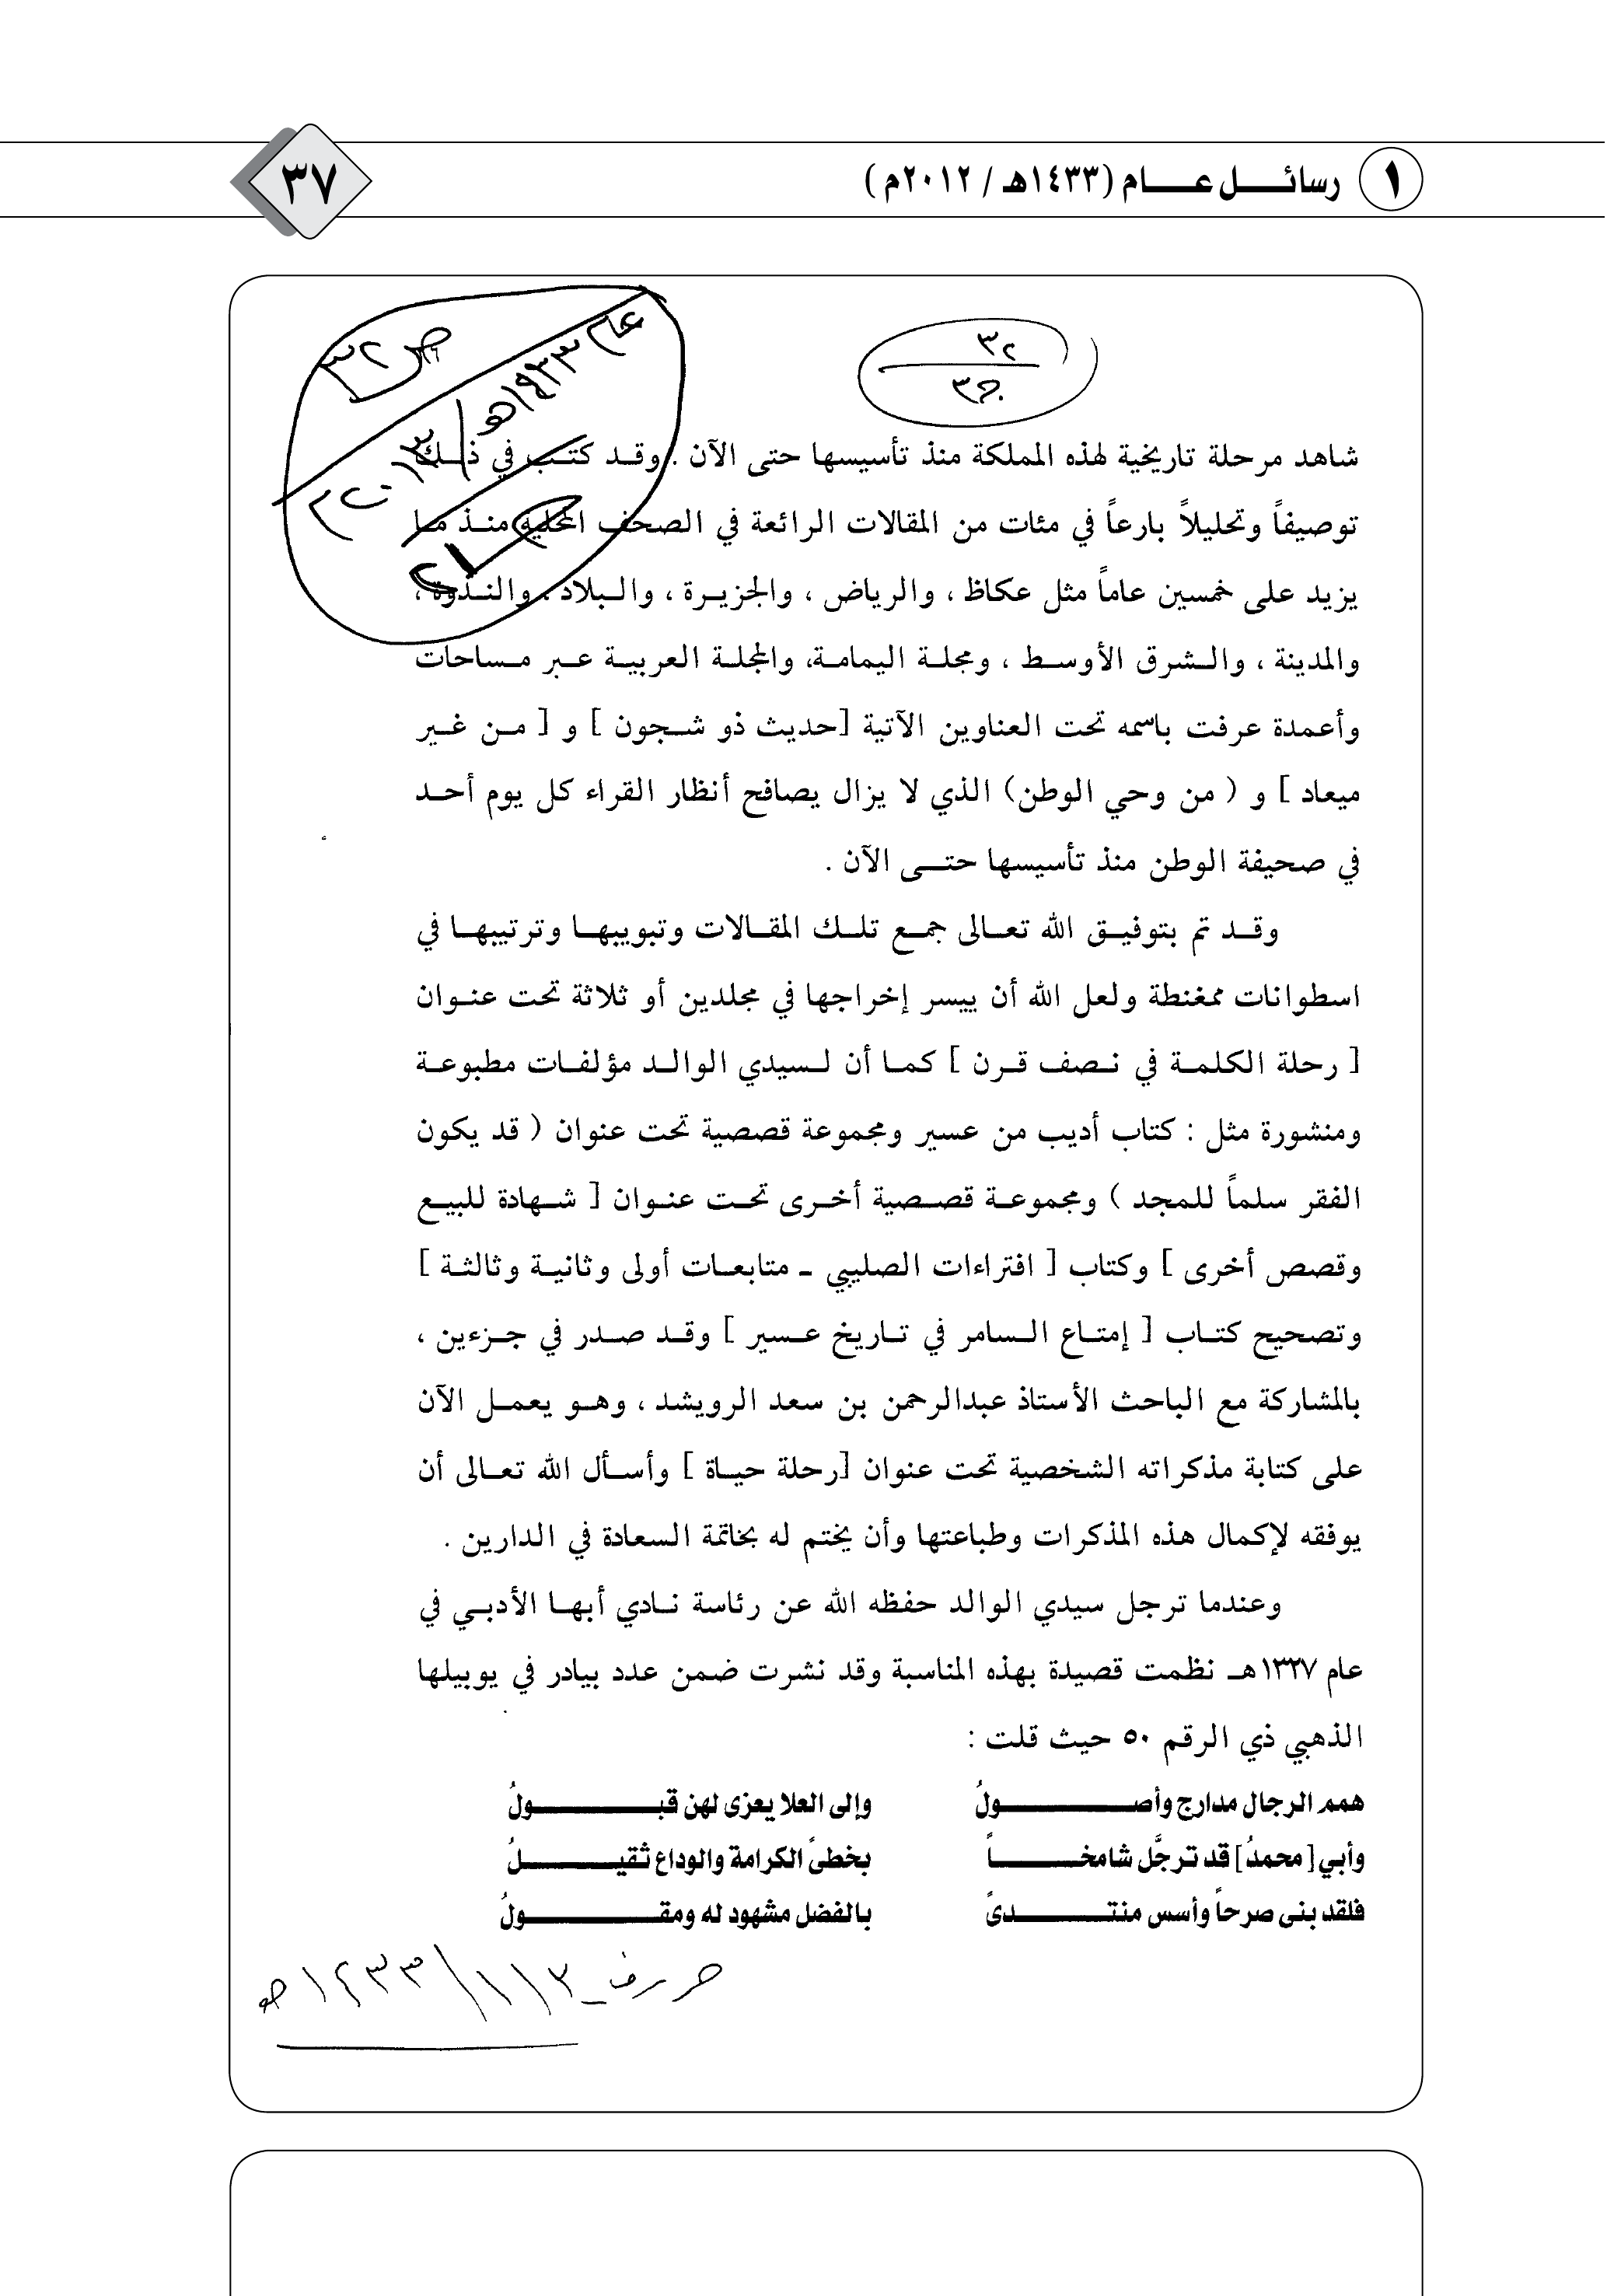 ١ رسائل عام (١٤٣٣هـ / ٢٠١٢م)
٣٧
عام ١٤٣٣هـ
شاهد مرحلة تاريخية لهذه المملكة منذ تأسيسها حتى الآن . وقد كتب في ذلك
توصيفاً وتحليلاً بارعاً في مئات من المقالات الرائعة في الصحف المحلية منذ ما
يزيد على خمسين عاماً مثل عكاظ ، والرياض ، والجزيرة ، والبلاد ، والندوة ،
والمدينة ، والشرق الأوسط ، ومجلة اليمامة، والمجلة العربية عبر مساحات
وأعمدة عرفت باسمه تحت العناوين الآتية [حديث ذو شجون ] و [ من غير
ميعاد ] و ( من وحي الوطن) الذي لا يزال يصافح أنظار القراء كل يوم أحد
في صحيفة الوطن منذ تأسيسها حتى الآن .
وقد تم بتوفيق الله تعالى جمع تلك المقالات وتبويبها وترتيبها في
اسطوانات ممغنطة ولعل الله أن ييسر إخراجها في مجلدين أو ثلاثة تحت عنوان
[ رحلة الكلمة في نصف قرن ] كما أن لسيدي الوالد مؤلفات مطبوعة
ومنشورة مثل : كتاب أديب من عسير ومجموعة قصصية تحت عنوان ( قد يكون
الفقر سلماً للمجد ) ومجموعة قصصية أخرى تحت عنوان [ شهادة للبيع
وقصص أخرى ] وكتاب [ افتراءات الصليبي ـ متابعات أولى وثانية وثالثة ]
وتصحيح كتاب [ إمتاع السامر في تاريخ عسير ] وقد صدر في جزءين ،
بالمشاركة مع الباحث الأستاذ عبدالرحمن بن سعد الرويشد ، وهو يعمل الآن
على كتابة مذكراته الشخصية تحت عنوان [رحلة حياة ] وأسأل الله تعالى أن
يوفقه لإكمال هذه المذكرات وطباعتها وأن يختم له بخاتمة السعادة في الدارين .
وعندما ترجل سيدي الوالد حفظه الله عن رئاسة نادي أبها الأدبي في
عام ١٣٢٧هـ نظمت قصيدة بهذه المناسبة وقد نشرت ضمن عدد بيادر في يوبيلها
الذهبي ذي الرقم ٥٠ حيث قلت :
همم الرجال مدارج وأصولُ وإلى العلا يعزى لهن قبولُ
وأبي [ محمدُ] قد ترجَّل شامخاً بخطىً الكرامة والوداع ثقيلُ
فلقد بنى صرحاً وأسس منتدىً بالفضل مشهود له ومقولُ